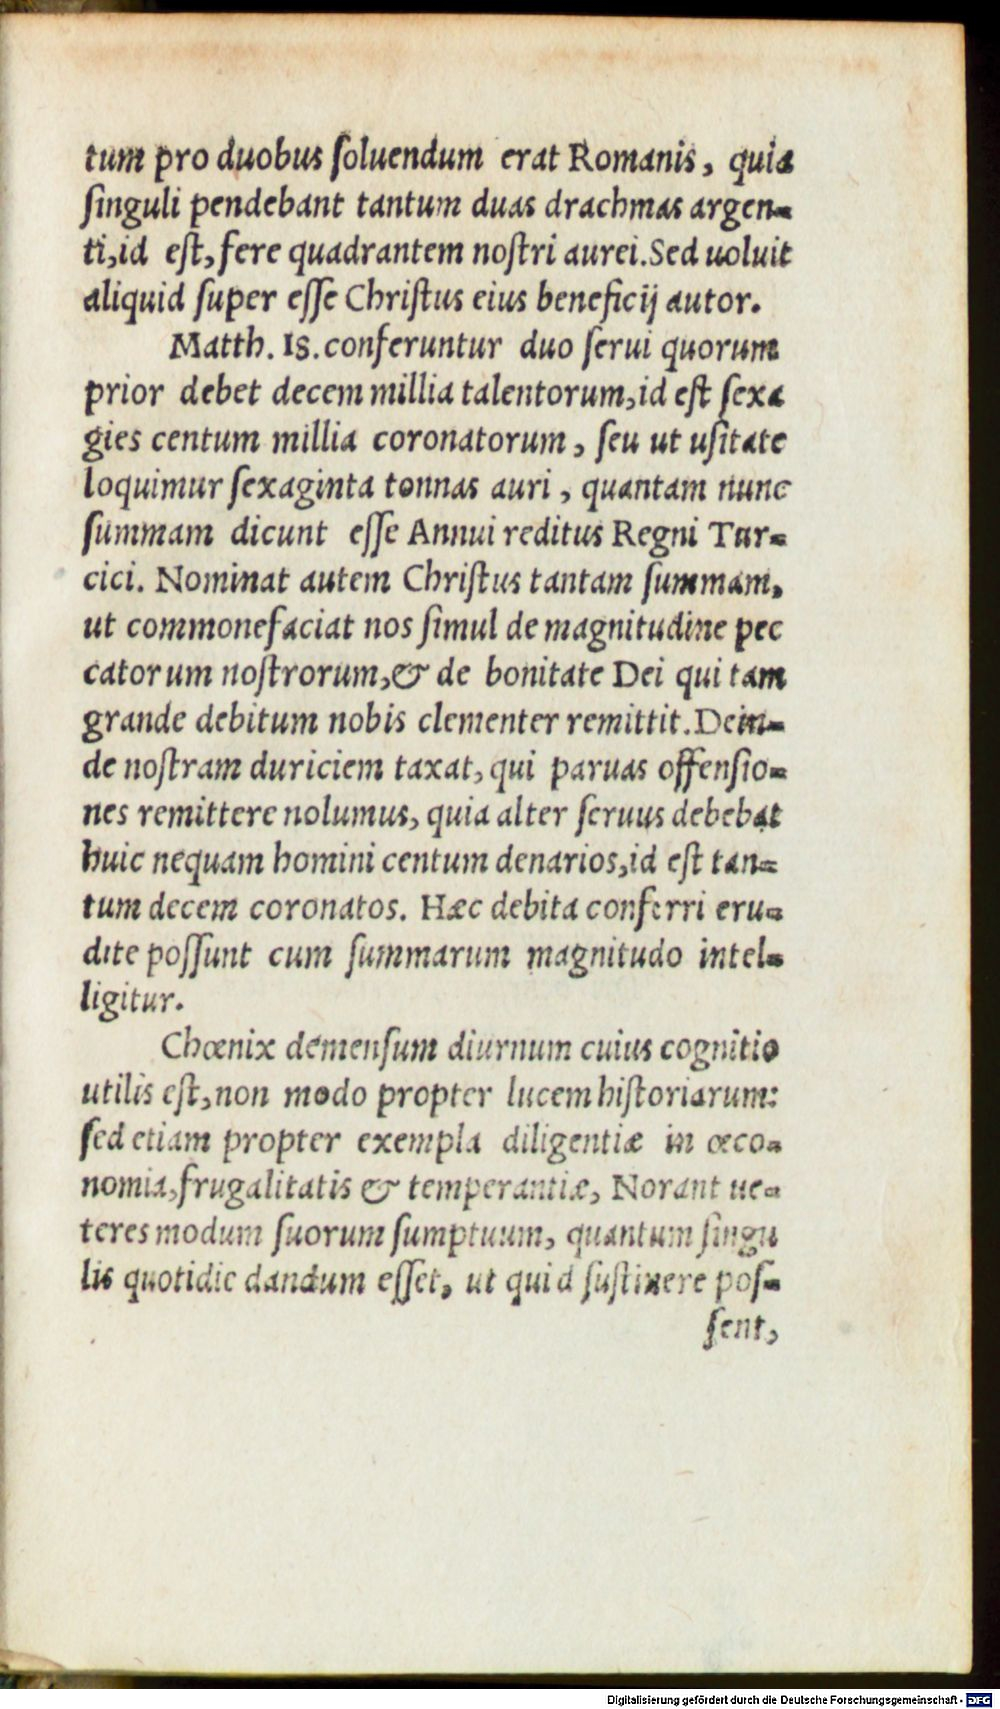 tum pro duobus soluendum erat Romanis, quia
singuli pendebant tantum duas drachmas argen-
ti, id est, fere quadrantem nostri aurei. Sed uoluit
aliquid super esse Christus eius beneficij autor.
Matth. 18. conferuntur duo serui quorum
prior debet decem millia talentorum, id est sexa
gies centum millia coronatorum, seu ut usitate
loquimur sexaginta tonnas auri, quantam nunc
summam dicunt esse Annui reditus Regni Tur-
cici. Nominat autem Christus tantam summam,
ut commonefaciat nos simul de magnitudine pec
catorum nostrorum, & de bonitate Dei qui tam
grande debitum nobis clementer remittit. Dein-
de nostram duriciem taxat, qui paruas offensio-
nes remittere nolumus, quia alter seruus debebat
huic nequam homini centum denarios, id est tan-
tum decem coronatos. Hæc debita conferri eru-
dite possunt cum summarum magnitudo intel-
ligitur.
Chœnix demensum diurnum cuius cognitio
utilis est, non modo propter lucem historiarum:
sed etiam propter exempla diligentiæ in œco-
nomia, frugalitatis & temperantiæ, Norant ue-
teres modum suorum sumptuum, quantum singu
lis quotidie dandum esset, ut quid sustinere pos-
sent,
Digitalisierung gefördert durch die Deutsche Forschungsgemeinschaft - DFG